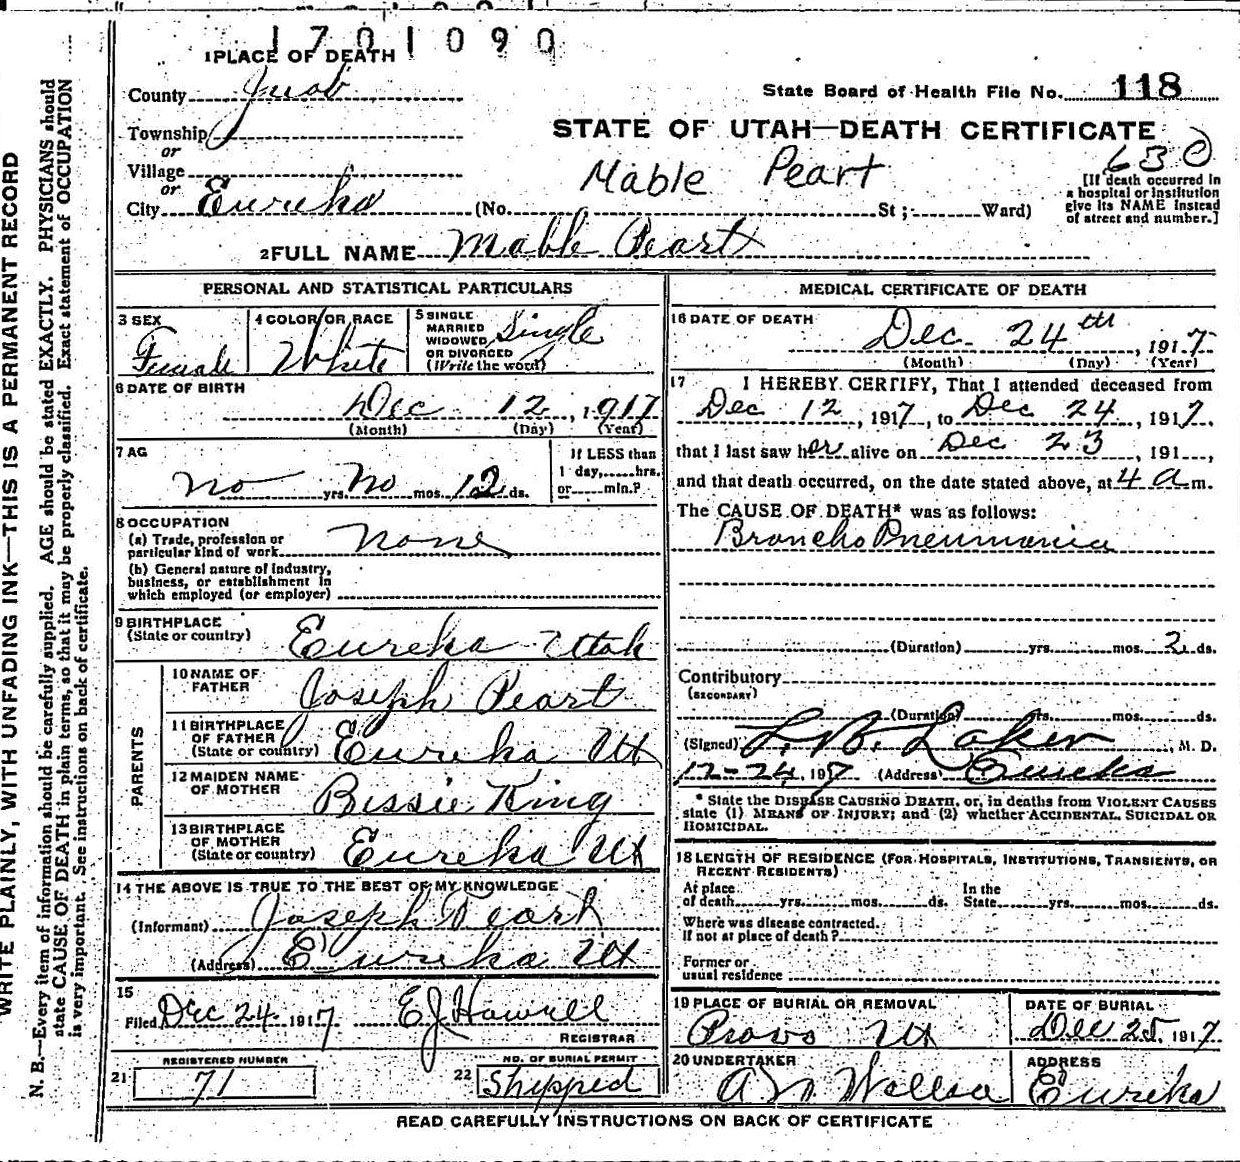 1701090
1 PLACE OF DEATH
County Juab
State Board of Health File No. 118
Township
or
STATE OF UTAH—DEATH CERTIFICATE
Village
or
Mable Peart
630
[If death occurred in
a hospital or institution
give its NAME instead
of street and number.]
City Eureka (No. St ; Ward)
2 FULL NAME Mable Peart
PERSONAL AND STATISTICAL PARTICULARS
3 SEX
Female
4 COLOR OR RACE
White
5 SINGLE
MARRIED
WIDOWED
OR DIVORCED
(Write the word)
Single
6 DATE OF BIRTH
Dec 12, 1917
(Month) (Day) (Year)
7 AG
no yrs. no mos. 12 ds.
If LESS than
1 day, hrs.
or min.?
8 OCCUPATION
(a) Trade, profession or
particular kind of work none
(b) General nature of industry,
business, or establishment in
which employed (or employer)
9 BIRTHPLACE
(State or country) Eureka Utah
PARENTS
10 NAME OF
FATHER Joseph Peart
11 BIRTHPLACE
OF FATHER
(State or country) Eureka Ut
12 MAIDEN NAME
OF MOTHER Bessie King
13 BIRTHPLACE
OF MOTHER
(State or country) Eureka Ut
14 THE ABOVE IS TRUE TO THE BEST OF MY KNOWLEDGE
(Informant) Joseph Peart
(Address) Eureka Ut
15
Filed Dec 24 1917 E J Howell
REGISTRAR
REGISTERED NUMBER
21 71
NO. OF BURIAL PERMIT
22 Shipped
MEDICAL CERTIFICATE OF DEATH
16 DATE OF DEATH
Dec. 24th, 1917
(Month) (Day) (Year)
17 I HEREBY CERTIFY, That I attended deceased from
Dec 12, 1917, to Dec 24, 1917.
that I last saw her alive on Dec 23, 191 ,
and that death occurred, on the date stated above, at 4 a m.
The CAUSE OF DEATH* was as follows:
Broncho Pneumonia
(Duration) yrs. mos. 2 ds.
Contributory
(SECONDARY)
(Duration) yrs. mos. ds.
(Signed) L. B. Laker, M. D.
12-24, 1917 (Address) Eureka
* State the DISEASE CAUSING DEATH, or, in deaths from VIOLENT CAUSES
state (1) MEANS OF INJURY; and (2) whether ACCIDENTAL, SUICIDAL OR
HOMICIDAL.
18 LENGTH OF RESIDENCE (FOR HOSPITALS, INSTITUTIONS, TRANSIENTS, OR
RECENT RESIDENTS)
At place
of death yrs. mos. ds.
In the
State yrs. mos. ds.
Where was disease contracted.
If not at place of death ?
Former or
usual residence
19 PLACE OF BURIAL OR REMOVAL
Provo Ut
DATE OF BURIAL
Dec 25, 1917.
20 UNDERTAKER
ADDRESS
Eureka
READ CAREFULLY INSTRUCTIONS ON BACK OF CERTIFICATE
WRITE PLAINLY, WITH UNFADING INK—THIS IS A PERMANENT RECORD
N. B.—Every item of information should be carefully supplied. AGE should be stated EXACTLY. PHYSICIANS should
state CAUSE OF DEATH in plain terms, so that it may be properly classified. Exact statement of OCCUPATION
is very important. See instructions on back of certificate.